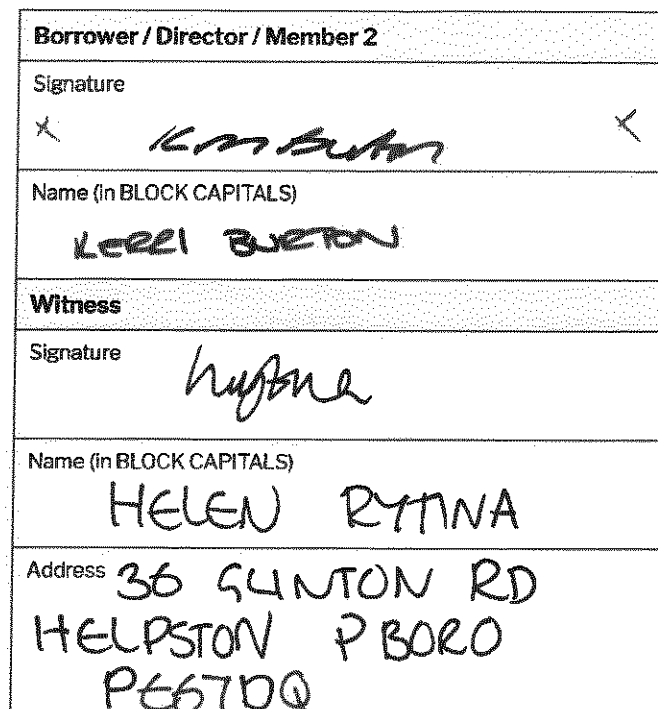 Borrower / Director / Member 2
Signature
x Kerri Burton x
Name (in BLOCK CAPITALS)
KERRI BURTON
Witness
Signature
Name (in BLOCK CAPITALS)
HELEN RYTINA
Address 36 GLINTON RD
HELPSTON P BORO
PE67DQ